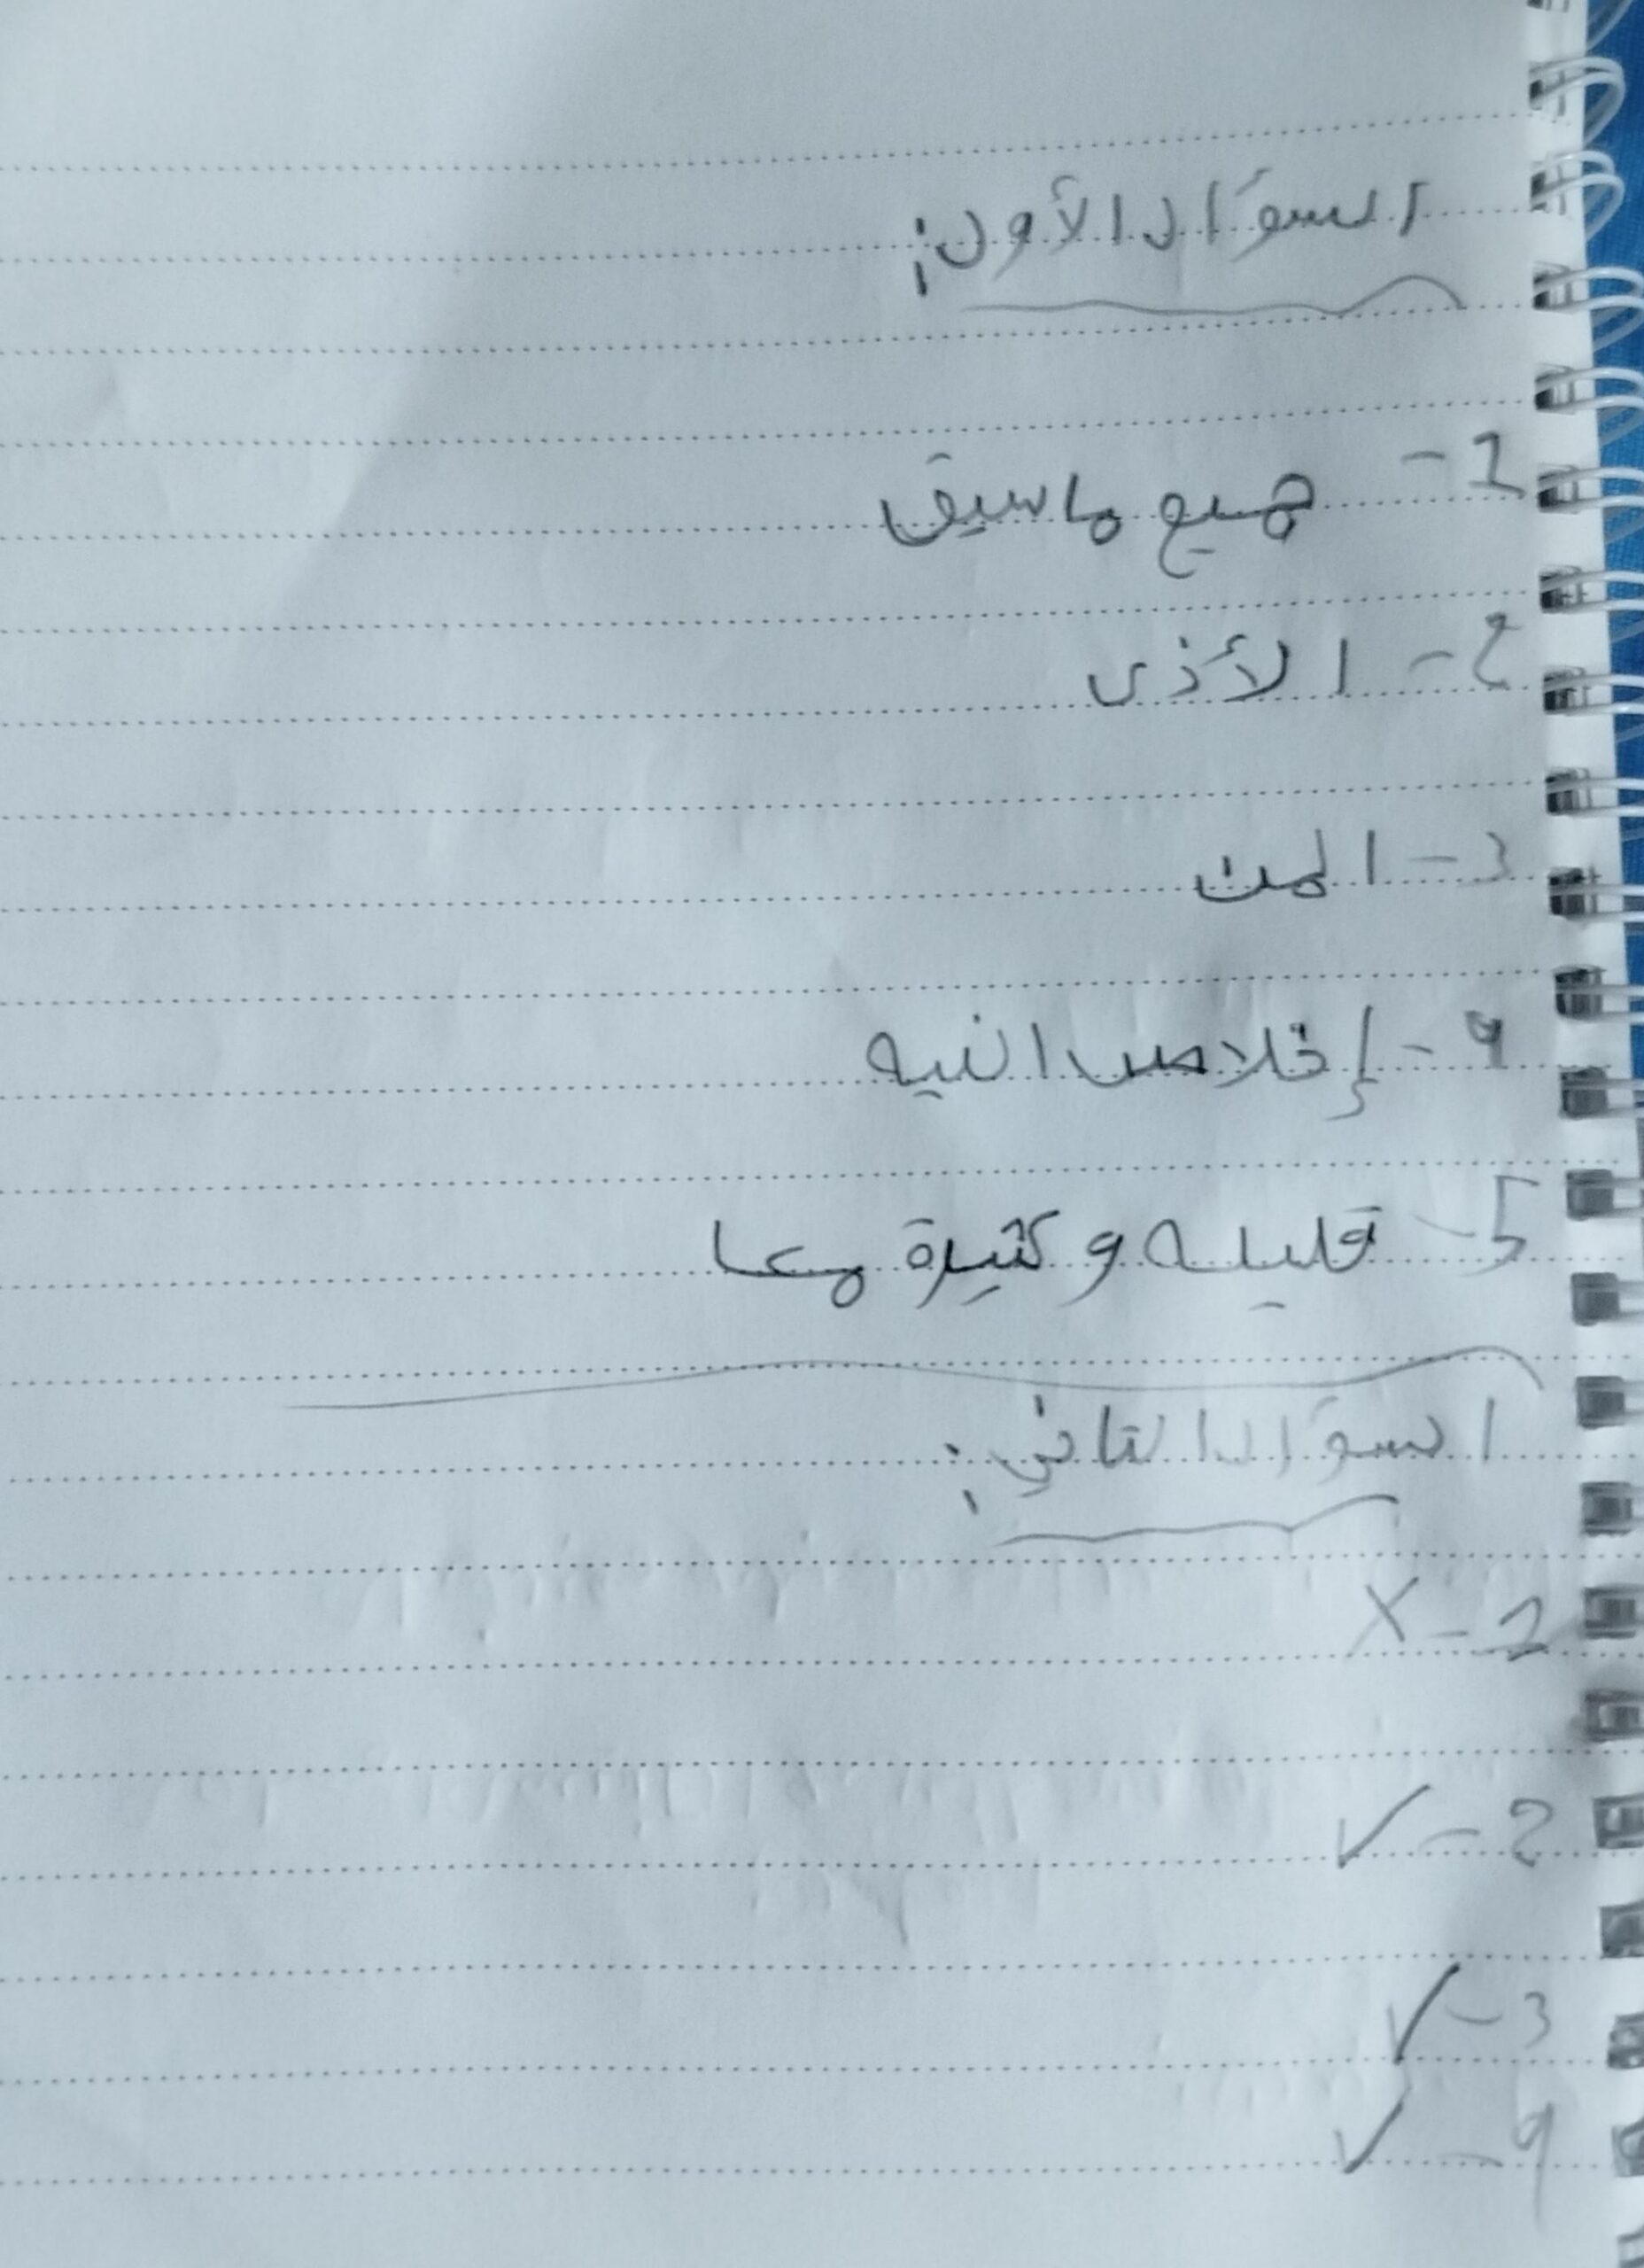 السؤال الأول:
1- جميع ما سبق
2- الأذى
3- المن
4- إخلاص النيه
5- قليله وكثيرة معا
السؤال الثاني:
1- X
2- ✓
3- ✓
4- ✓